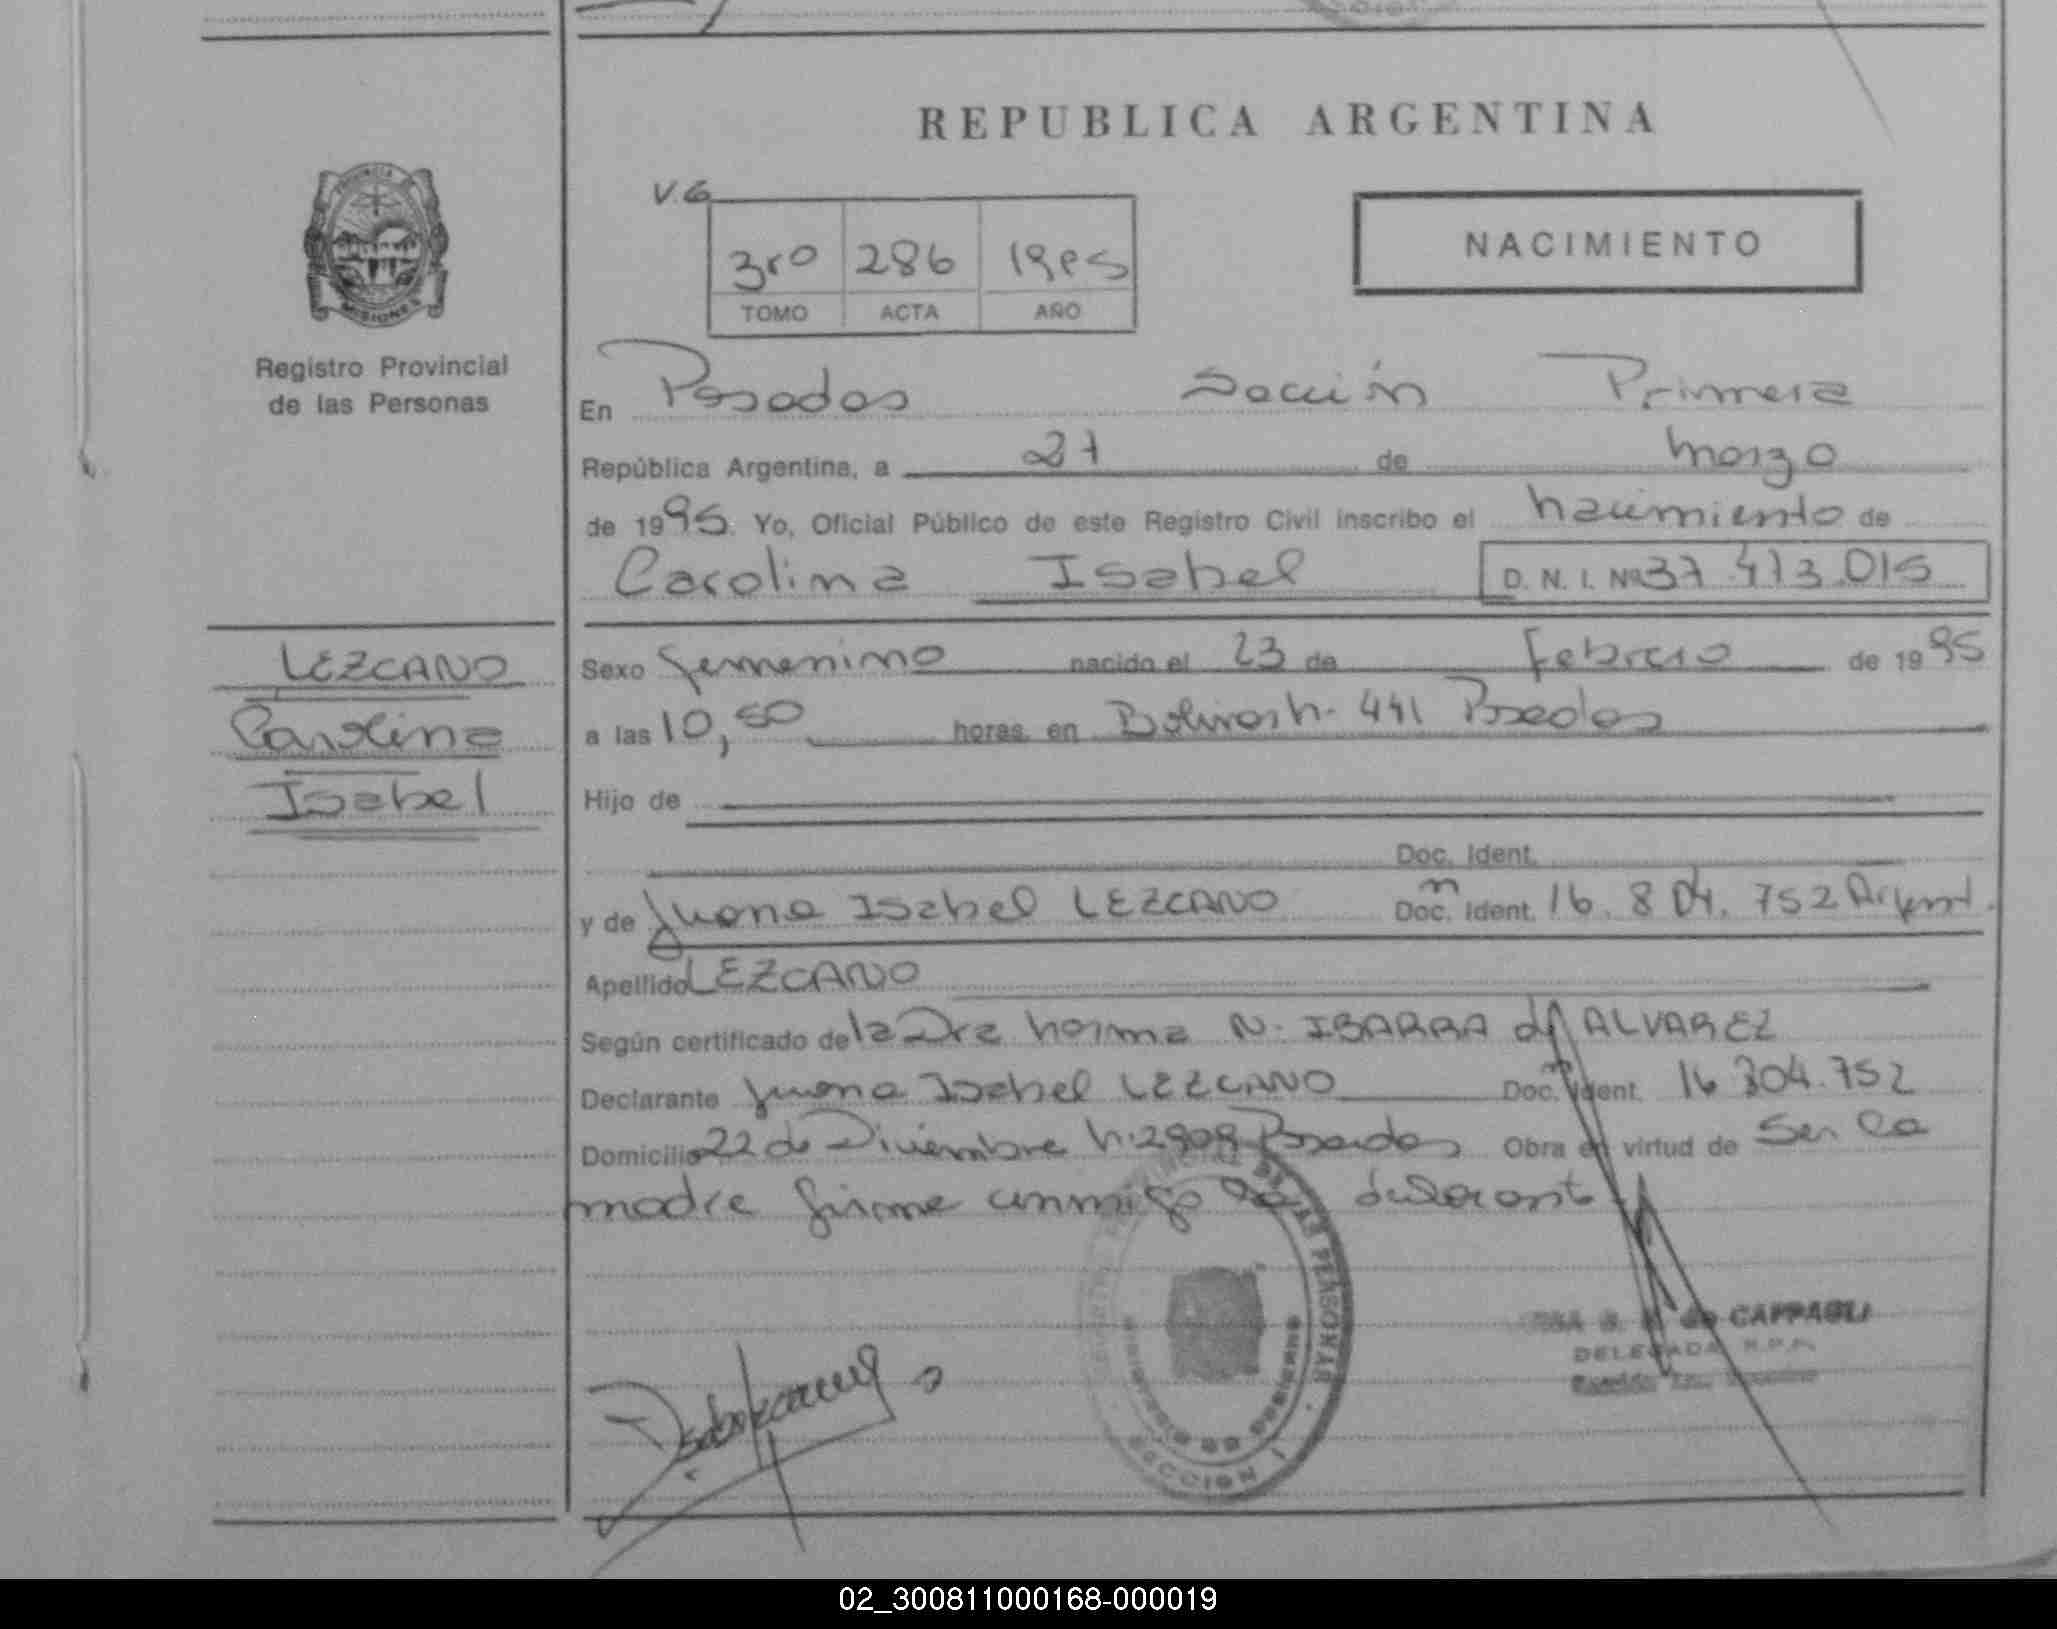 REPUBLICA ARGENTINA
V.6
3ro 286 1995
TOMO ACTA AÑO
NACIMIENTO
PROVINCIA DE
MISIONES
Registro Provincial
de las Personas
En Posadas Sección Primera
República Argentina, a 27 de marzo
de 1995. Yo, Oficial Público de este Registro Civil inscribo el nacimiento de
Carolina Isabel D. N. I. Nº 37.473.015
LEZCANO
Carolina
Isabel
Sexo femenino nacido el 23 de febrero de 1995
a las 10,50 horas en Bolivar n. 441 Posadas
Hijo de
Doc. Ident.
y de Juana Isabel LEZCANO Doc. Ident. 16.804.752 Argent.
Apellido LEZCANO
Según certificado de la Dra Norma N. IBARRA de ALVAREZ
Declarante Juana Isabel LEZCANO Doc. Ident. 16 304.752
Domicilio 22 de Diciembre n. 2909 Posadas Obra en virtud de ser la
madre firma conmigo la declarante
DE LAS PERSONAS
MINISTERIO DE GOBIERNO
SECCION 1
de CAPPAGLI
DELEGADA R.P.P.
02_300811000168-000019